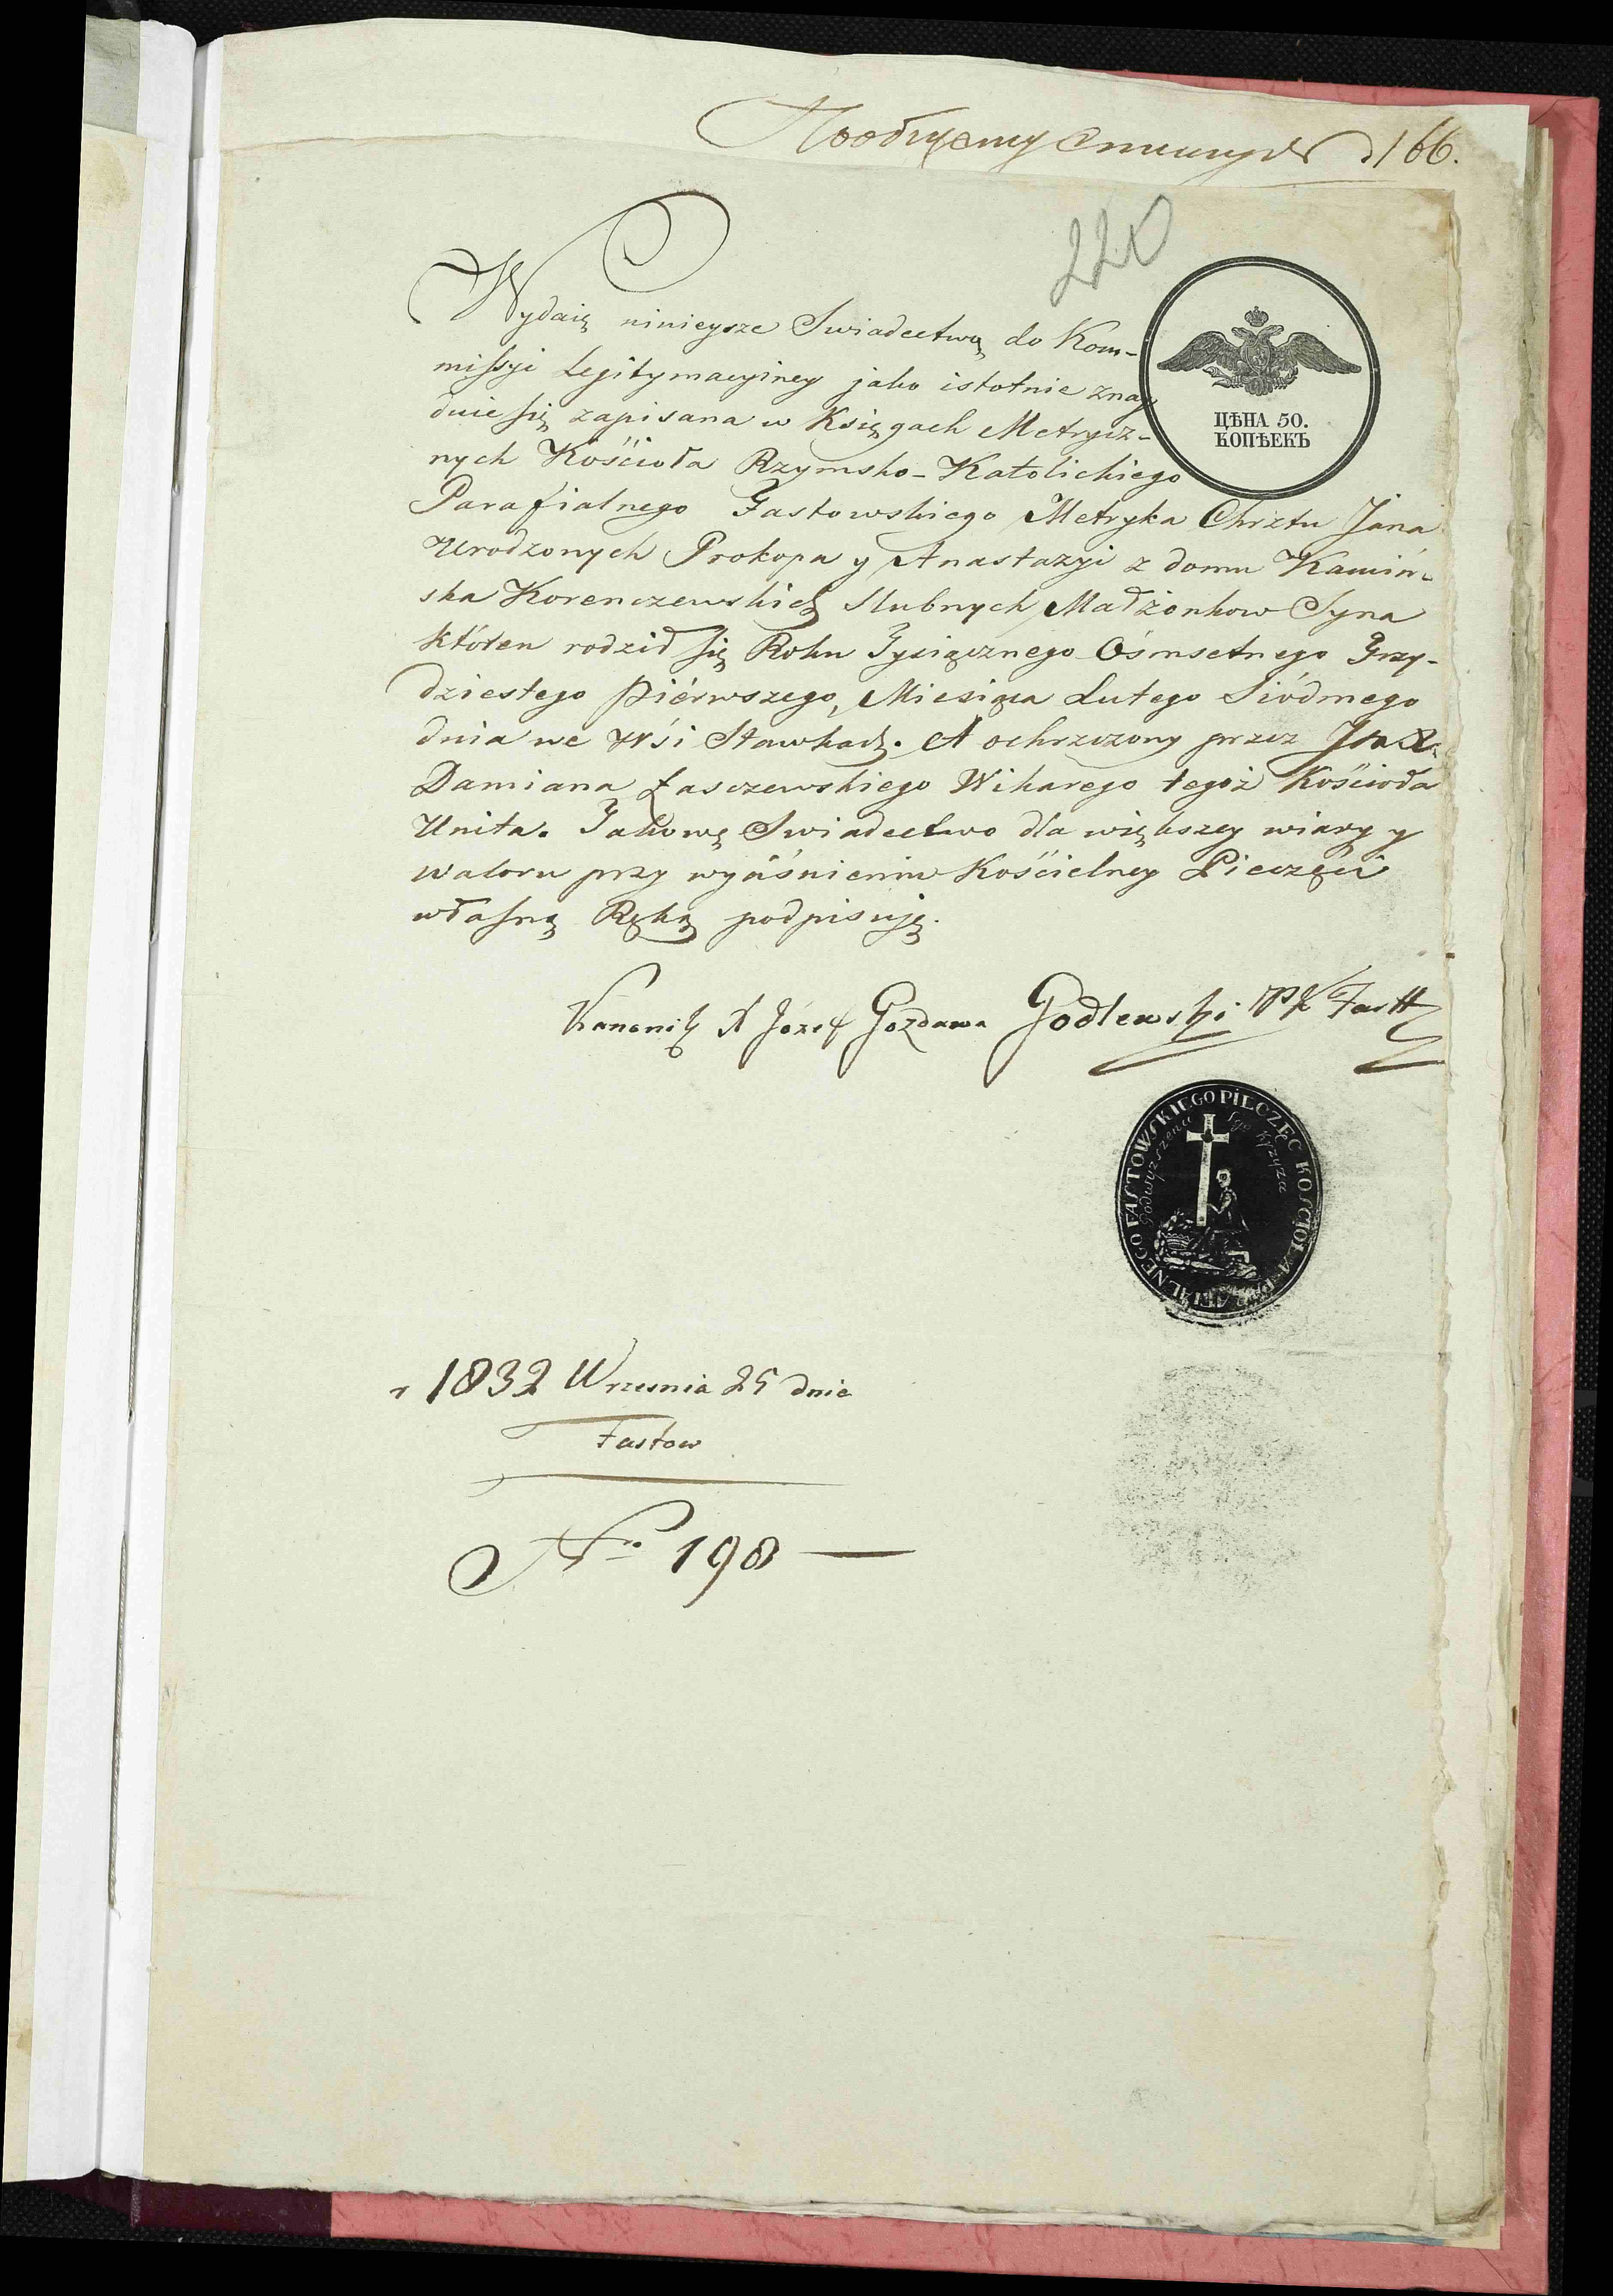 Пообщему списку № 166.
220
ЦѢНА 50.
КОПѢЕКЪ
Wydaię ninieysze Swiadectwo do Kom-
missyi Legitymacyiney jako istotnie znay
duie się zapisana w Księgach Metrycz-
nych Kościoła Rzymsko-Katolickiego
Parafialnego Fastowskiego Metryka Chrztu Jana
Urodzonych Prokopa y Anastazyi z domu Kamiń-
ska Korenczewskich Slubnych Małżonkow Syna
któten rodził się Roku Tysiącznego Ośmsetnego Trzy-
dziestego piérwszego, Miesiąca Lutego Siódmego
dnia we Wśi Stawkach. A ochrzczony przez
Damiana Łasczewskiego Wikarego tegoż Kościoła
Unita. Takowe Swiadectwo dla większey wiary y
waloru przy wyciśnieniu Kościelney Pieczęci
własną Ręką podpisuję.
Kanonik X Józef Gozdawa Godlewski PK Fastt
PIECZĘC KOSCIOŁA PARAFIALNEGO FASTOWSKIEGO
Podwyzszenia Sgo Krzyza
r 1832 Wrzesnia 25 dnia
Fastow
No 198